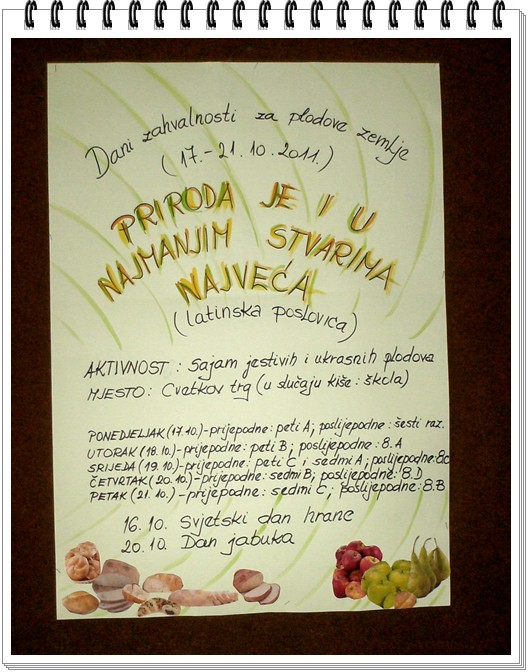 Dani zahvalnosti za plodove zemlje
(17.-21.10.2011.)
PRIRODA JE I U
NAJMANJIM STVARIMA
NAJVEĆA
(latinska poslovica)
AKTIVNOST : Sajam jestivih i ukrasnih plodova
MJESTO: Cvetkov trg (u slučaju kiše: škola)
PONEDJELJAK (17.10.)-prijepodne: peti A; poslijepodne: šesti raz.
UTORAK (18.10.)-prijepodne: peti B; poslijepodne: 8.A
SRIJEDA (19.10.)-prijepodne: peti C i sedmi A; poslijepodne: 8.C
ČETVRTAK (20.10.)-prijepodne: sedmi B; poslijepodne: 8.D
PETAK (21.10.)-prijepodne: sedmi C; poslijepodne: 8.B
16.10. Svjetski dan hrane
20.10. Dan jabuka